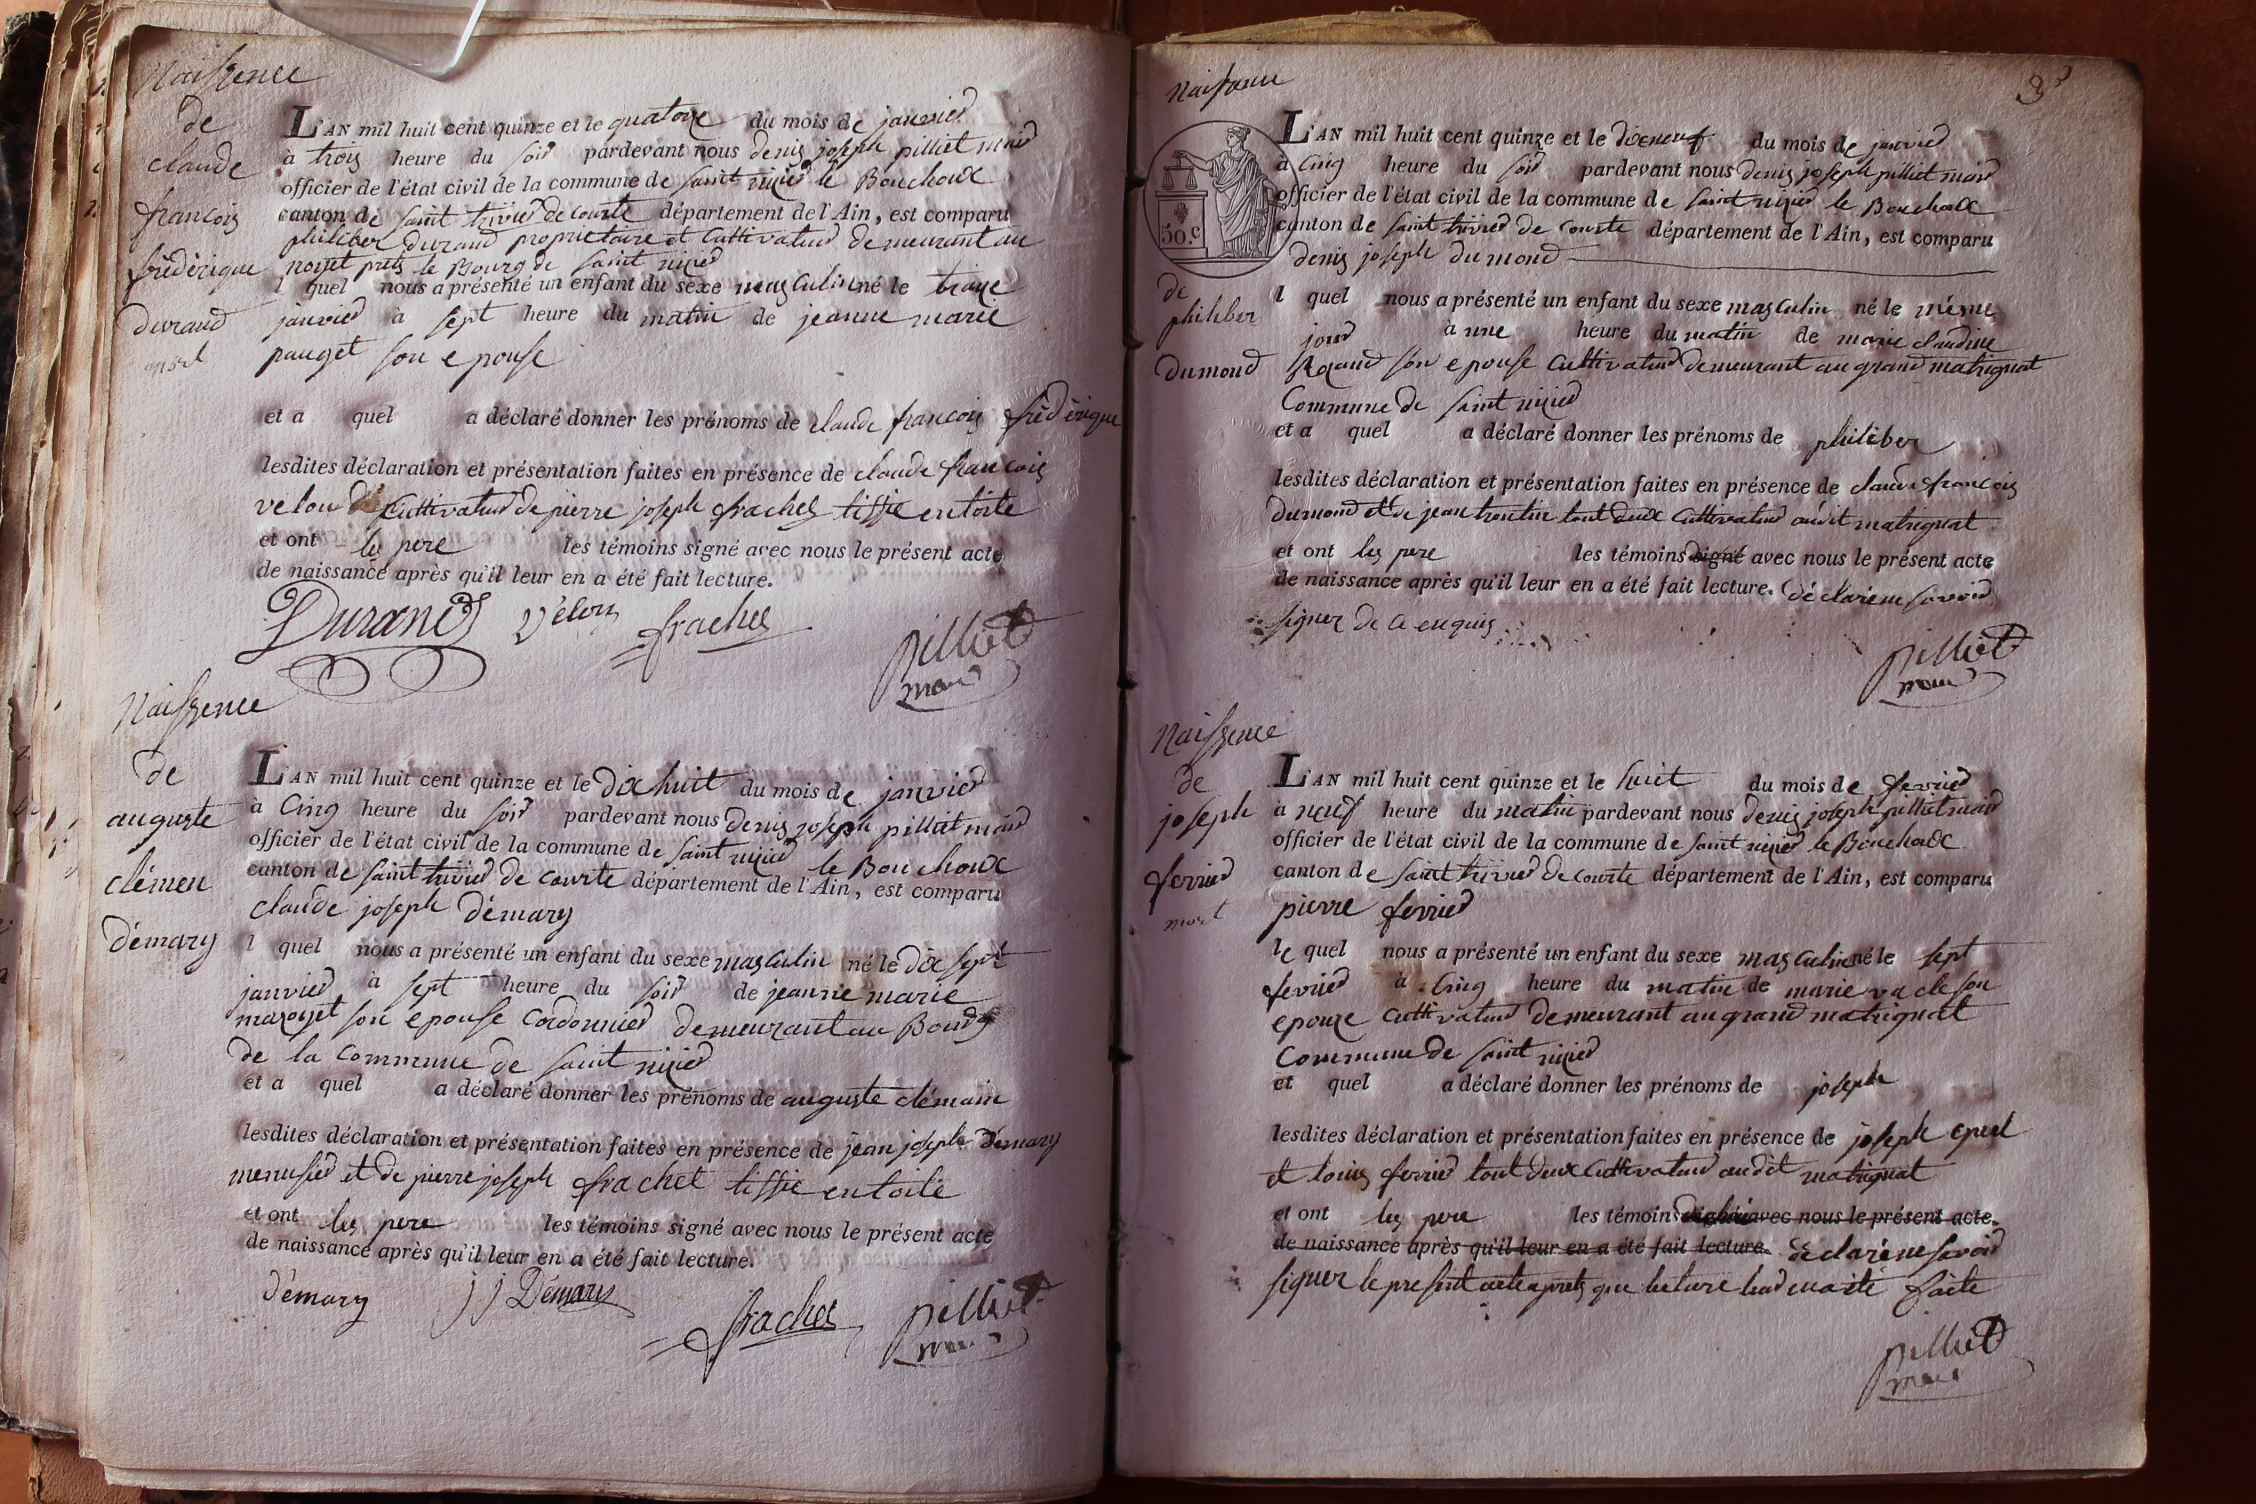 Naissence
de
claude
francois
frédérique
durand
mort
L'AN mil huit cent quinze et le quatorze du mois de janvier
à trois heure du soir pardevant nous denis joseph pilliet maire
officier de l'état civil de la commune de saint nizier le Bouchoux
canton de saint trivier de courte département de l'Ain, est comparu
philiber durand proprietaire et Cultivateur demeurant au
noyet prets le Bourg de saint nizier
l quel nous a présenté un enfant du sexe masculin né le traize
janvier à sept heure du matin de jeanne marie
pauget son epouse
et a quel a déclaré donner les prénoms de claude francois frédérique
lesdites déclaration et présentation faites en présence de claude francois
velou Cultivateur de pierre joseph frachet tissie en toile
et ont les pere les témoins signé avec nous le présent acte
de naissance après qu'il leur en a été fait lecture.
Durand Vélou frachet pilliet
maire
Naissence
de
auguste
clémen
démary
L'AN mil huit cent quinze et le dix huit du mois de janvier
à Cinq heure du soir pardevant nous denis joseph pilliet maire
officier de l'état civil de la commune de saint nizier le Bouchoux
canton de saint trivier de courte département de l'Ain, est comparu
claude joseph démary
l quel nous a présenté un enfant du sexe masculin né le dix sept
janvier à sept heure du soir de jeanne marie
mazoyet son epouse Cordonnier demeurant au Bourg
de la Commune de saint nizier
et a quel a déclaré donner les prénoms de auguste clémain
lesdites déclaration et présentation faites en présence de jean joseph Démary
menusier et de pierre joseph frachet tissie en toile
et ont les pere les témoins signé avec nous le présent acte
de naissance après qu'il leur en a été fait lecture.
démary j j Démary frachet pilliet
maire
Naissance
50.c
de
philiber
dumond
L'AN mil huit cent quinze et le dixneuf du mois de janvier
à Cinq heure du soir pardevant nous denis joseph pilliet maire
officier de l'état civil de la commune de saint nizier le Bouchoux
canton de saint trivier de courte département de l'Ain, est comparu
denis joseph dumond
l quel nous a présenté un enfant du sexe masculin né le même
jour à une heure du matin de marie claudine
son epouse Cultivateur demeurant au grand matrignat
Commune de saint nizier
et a quel a déclaré donner les prénoms de philiber
lesdites déclaration et présentation faites en présence de claude francois
dumond et de jean trontin tout deux Cultivateur audit matrignat
et ont les pere les témoins signé avec nous le présent acte
de naissance après qu'il leur en a été fait lecture. déclarene savoir
signer de ce enquis
pilliet
maire
Naissence
de
joseph
ferrier
mort
L'AN mil huit cent quinze et le huit du mois de fevrier
à neuf heure du matin pardevant nous denis joseph pilliet maire
officier de l'état civil de la commune de saint nizier le Bouchoux
canton de saint trivier de courte département de l'Ain, est comparu
pierre ferrier
le quel nous a présenté un enfant du sexe masculin né le sept
fevrier à Cinq heure du matin de marie vacle son
epouze Cultivateur demeurant au grand matrignat
Commune de saint nizier
et quel a déclaré donner les prénoms de joseph
lesdites déclaration et présentation faites en présence de joseph
et louis ferrier tout deux Cultivateur audit matrignat
et ont les pere les témoins avec nous le présent acte
de naissance après qu'il leur en a été fait lecture. déclarene savoir
signer le present acte aprets que lecture leur en a été faite
pilliet
maire